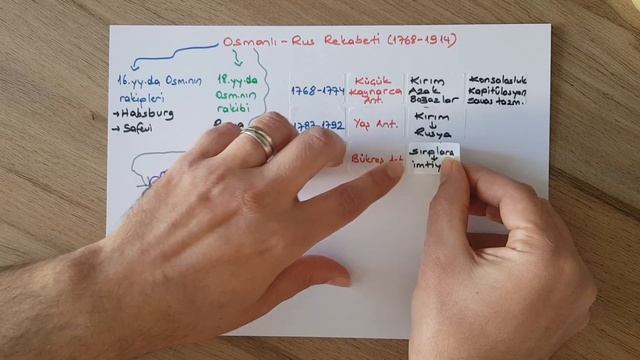 Osmanlı - Rus Rekabeti (1768-1914)
16.yy.da Osm.nın
rakipleri
→ Habsburg
→ Safevi
18.yy.da
Osm.nın
rakibi
1768-1774
Küçük
Kaynarca
Ant.
Kırım
Azak
Boğazlar
Konsolosluk
Kapitülasyon
savaş tazm.
1787-1792
Yaş Ant.
Kırım
↓
Rusya
Bükreş Ant.
Sırplara